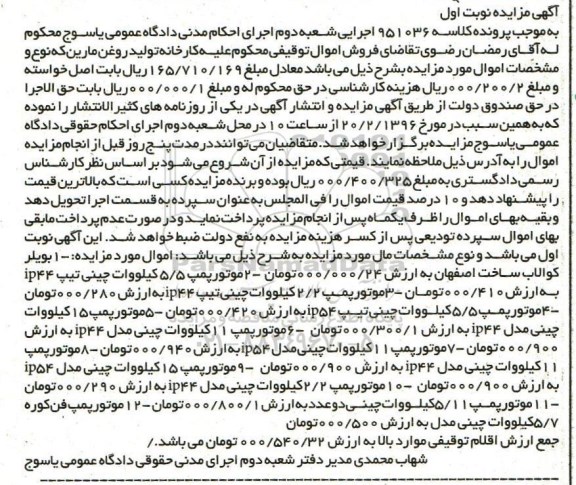 آگهی مزایده نوبت اول
به موجب پرونده کلاسه ۹۵۱۰۳۶ اجرایی شعبه دوم اجرای احکام مدنی دادگاه عمومی یاسوج محکوم
له آقای رمضان رضوی تقاضای فروش اموال توقیفی محکوم علیه کارخانه تولید روغن مارین که نوع و
مشخصات اموال مورد مزایده بشرح ذیل می باشد معادل مبلغ ۱۶۵/۷۱۰/۱۶۹ ریال بابت اصل خواسته
و مبلغ ۰۰۰/۲۰۰/۲ ریال هزینه کارشناسی در حق محکوم له و مبلغ ۰۰۰/۰۰۰/۱ ریال بابت حق الاجرا
در حق صندوق دولت از طریق آگهی مزایده و انتشار آگهی در یکی از روزنامه های کثیر الانتشار را نموده
که به همین سبب در مورخ ۲۰/۲/۱۳۹۶ از ساعت ۱۰ در محل شعبه دوم اجرای احکام حقوقی دادگاه
عمومی یاسوج مزایده برگزار خواهد شد. متقاضیان می توانند در مدت پنج روز قبل از انجام مزایده
اموال را به آدرس ذیل ملاحظه نمایند. قیمتی که مزایده از آن شروع می شود بر اساس نظر کارشناس
رسمی دادگستری به مبلغ ۰۰۰/۴۰۰/۳۲۵ ریال بوده و برنده مزایده کسی است که بالاترین قیمت
را پیشنهاد دهد و ۱۰ درصد قیمت اموال را فی المجلس به عنوان سپرده به قسمت اجرا تحویل دهد
و بقیه بهای اموال را ظرف یکماه پس از انجام مزایده پرداخت نماید و در صورت عدم پرداخت مابقی
بهای اموال سپرده تودیعی پس از کسر هزینه مزایده به نفع دولت ضبط خواهد شد. این آگهی نوبت
اول می باشد و نوع مشخصات مال مورد مزایده به شرح ذیل می باشد: اموال مورد مزایده: ۱- بویلر
کوالاب ساخت اصفهان به ارزش ۰۰۰/۰۰۰/۲۴ تومان ۲-موتورپمپ ۵/۵ کیلووات چینی تیپ ip۴۴
به ارزش ۰۰۰/۴۱۰ تومان ۳-موتورپمپ ۲/۲ کیلووات چینی تیپ ip۴۴ به ارزش ۰۰۰/۲۸۰ تومان
۴-موتورپمپ ۵/۵ کیلووات چینی تیپ ip۵۴ به ارزش ۰۰۰/۴۲۰ تومان ۵-موتورپمپ ۱۵ کیلووات
چینی مدل ip۴۴ به ارزش ۰۰۰/۳۰۰/۱ تومان ۶-موتورپمپ ۱۱ کیلووات چینی مدل ip۴۴ به ارزش
۰۰۰/۹۰۰ تومان ۷-موتورپمپ ۱۱ کیلووات چینی مدل ip۵۴ به ارزش ۰۰۰/۹۴۰ تومان ۸-موتورپمپ
۱۱ کیلووات چینی مدل ip۴۴ به ارزش ۰۰۰/۹۰۰ تومان ۹-موتورپمپ ۱۵ کیلووات چینی مدل ip۵۴
به ارزش ۰۰۰/۹۰۰ تومان ۱۰-موتورپمپ ۲/۲ کیلووات چینی مدل ip۴۴ به ارزش ۰۰۰/۲۹۰ تومان
۱۱-موتورپمپ ۵/۱۱ کیلووات چینی دو عدد به ارزش ۰۰۰/۸۰۰/۱ تومان ۱۲-موتورپمپ فن کوره
۵/۷ کیلووات چینی مدل به ارزش ۰۰۰/۵۰۰ تومان
جمع ارزش اقلام توقیفی موارد بالا به ارزش ۰۰۰/۵۴۰/۳۲ تومان می باشد./
شهاب محمدی مدیر دفتر شعبه دوم اجرای مدنی حقوقی دادگاه عمومی یاسوج